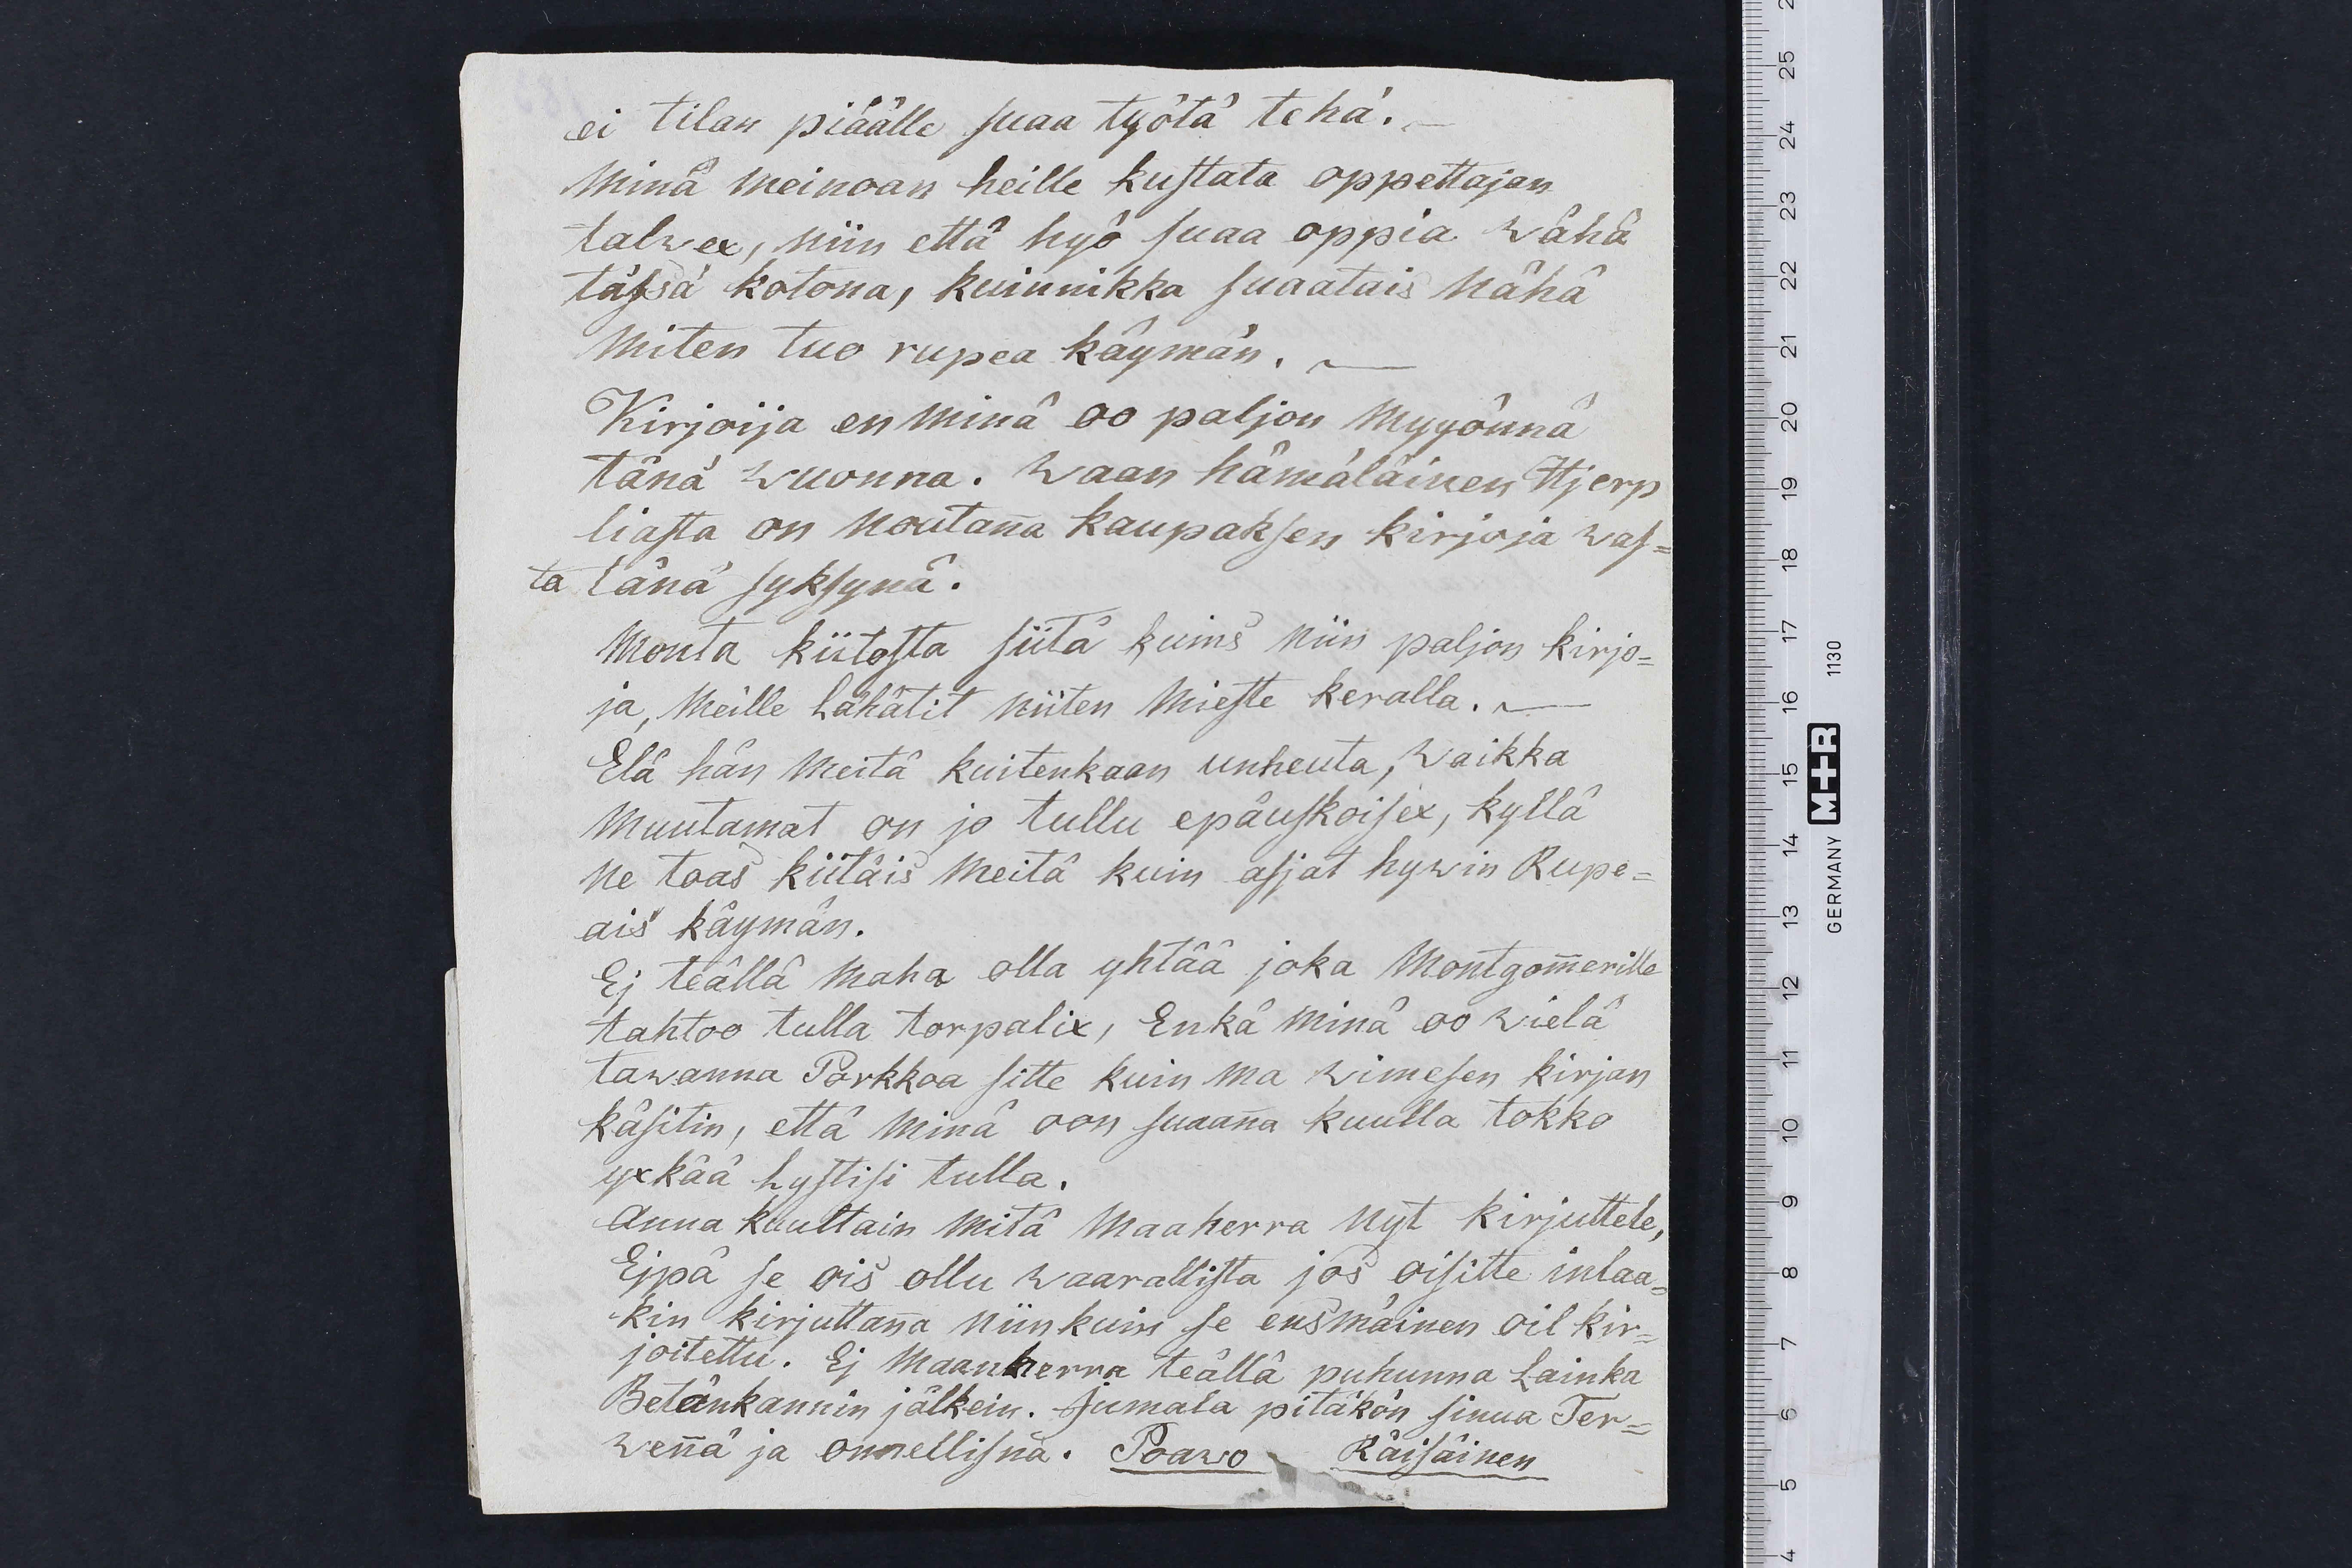 ei tilan piäälle suaa työtä tehä. —
Minä meinoan heille kustata oppettajan
talwex, niin että hyö suaa oppia wähä
tässä kotona, kuinnikka suaatais nähä
miten tuo rupea käymän. —
Kirjoija en minä oo paljon myyönnä
tänä wuonna. Waan hämäläinen Hjerp
liasta on noutana kaupaksen kirjoja was=
ta tänä syksynä.
Monta kiitosta siitä kuins niin paljon kirjo=
ja, meille Lähätit niiten mieste keralla. —
Elä hän meitä kuitenkaan unheuta, waikka
muutamat on jo tullu epäuskoisex, kyllä
ne toas kiitäis meitä kuin asjat hywin Rupe=
ais käymän.
Ej teällä maha olla yhtää joka Montgomerille
tahtoo tulla torpalix, Enkä minä oo wielä
tawanna Parkkoa sitte kuin ma wimesen kirjan
käsitin, että minä oon suaana kuulla tokko
yxkää hystisi tulla.
Anna kuultain mitä Maaherra nyt kirjuttele,
Ejpä se ois ollu waarallista jos oisitte inlaa=
kin kirjuttana niinkuin se ensmäinen oil kir=
joitettu. Ej Maanherra teällä puhunna Lainka
Betänkannin jälkein. Jumala pitäkön sinua Ter=
wennä ja onnellisna. Poawo Räisäinen
25
24
23
22
21
20
19
18
17
16
15
14
13
12
11
10
9
8
7
6
5
4
GERMANY M+R 1130